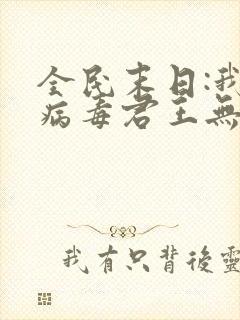 全民末日:我
病毒君王無
我有只背後靈